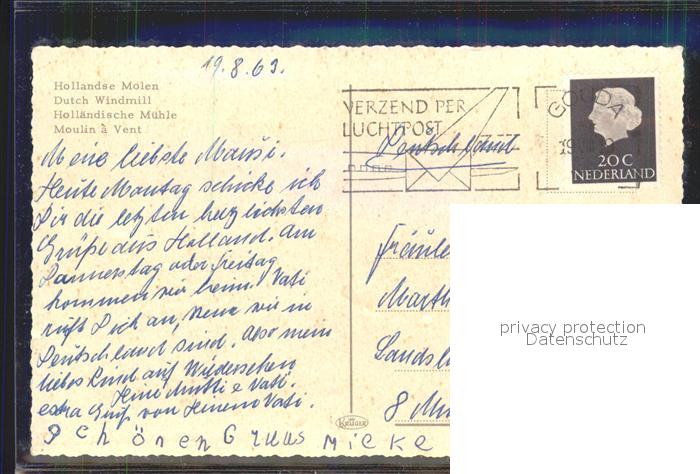 19.8.63.
Hollandse Molen
Dutch Windmill
Holländische Mühle
Moulin à Vent
VERZEND PER
LUCHTPOST
GOUDA
20 C
NEDERLAND
Deutschland
Meine liebste Mausi.
Heute Montag schicke ich
Dir die letzten herzlichsten
Grüße aus Holland. Am
Donnerstag oder Freitag
kommen wir heim. Vati
ruft Dich an, wenn wir in
Deutschland sind. Also mein
liebes Kind auf Wiedersehen
Deine Mutti e Vati.
extra Gruß von Deinem Vati.
SchönenGruus Micke
Fräule
Marth
Landsh
8 Mü
KRÜGER
privacy protection
Datenschutz